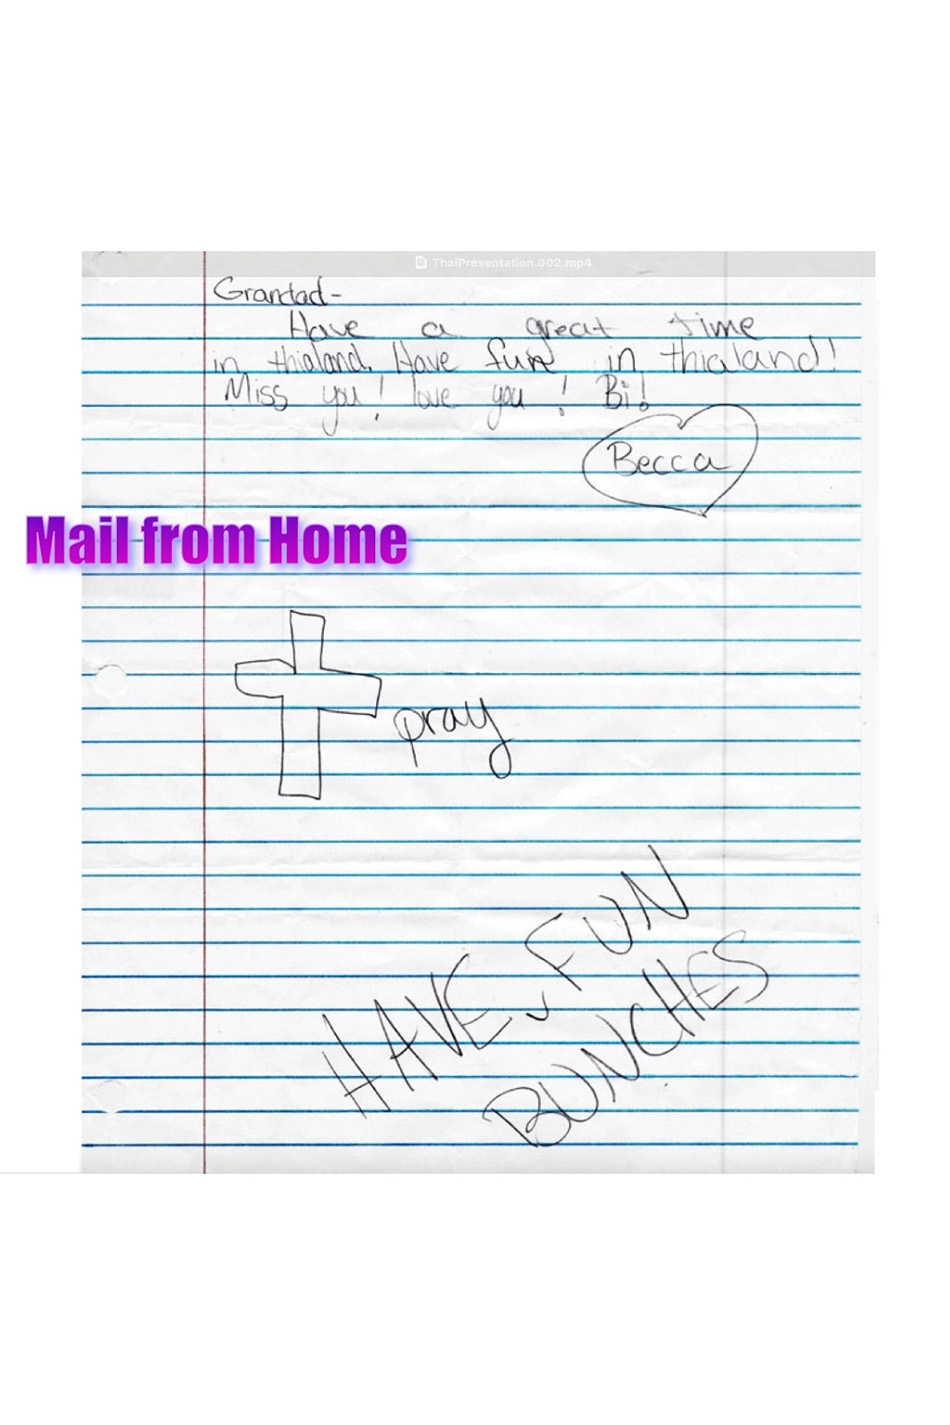 ThaiPresentation.002.mp4
Grandad-
Have a great time
in thialand. Have fun in thialand!
Miss you! love you! Bi!
Becca
Mail from Home
pray
HAVE FUN
BUNCHES